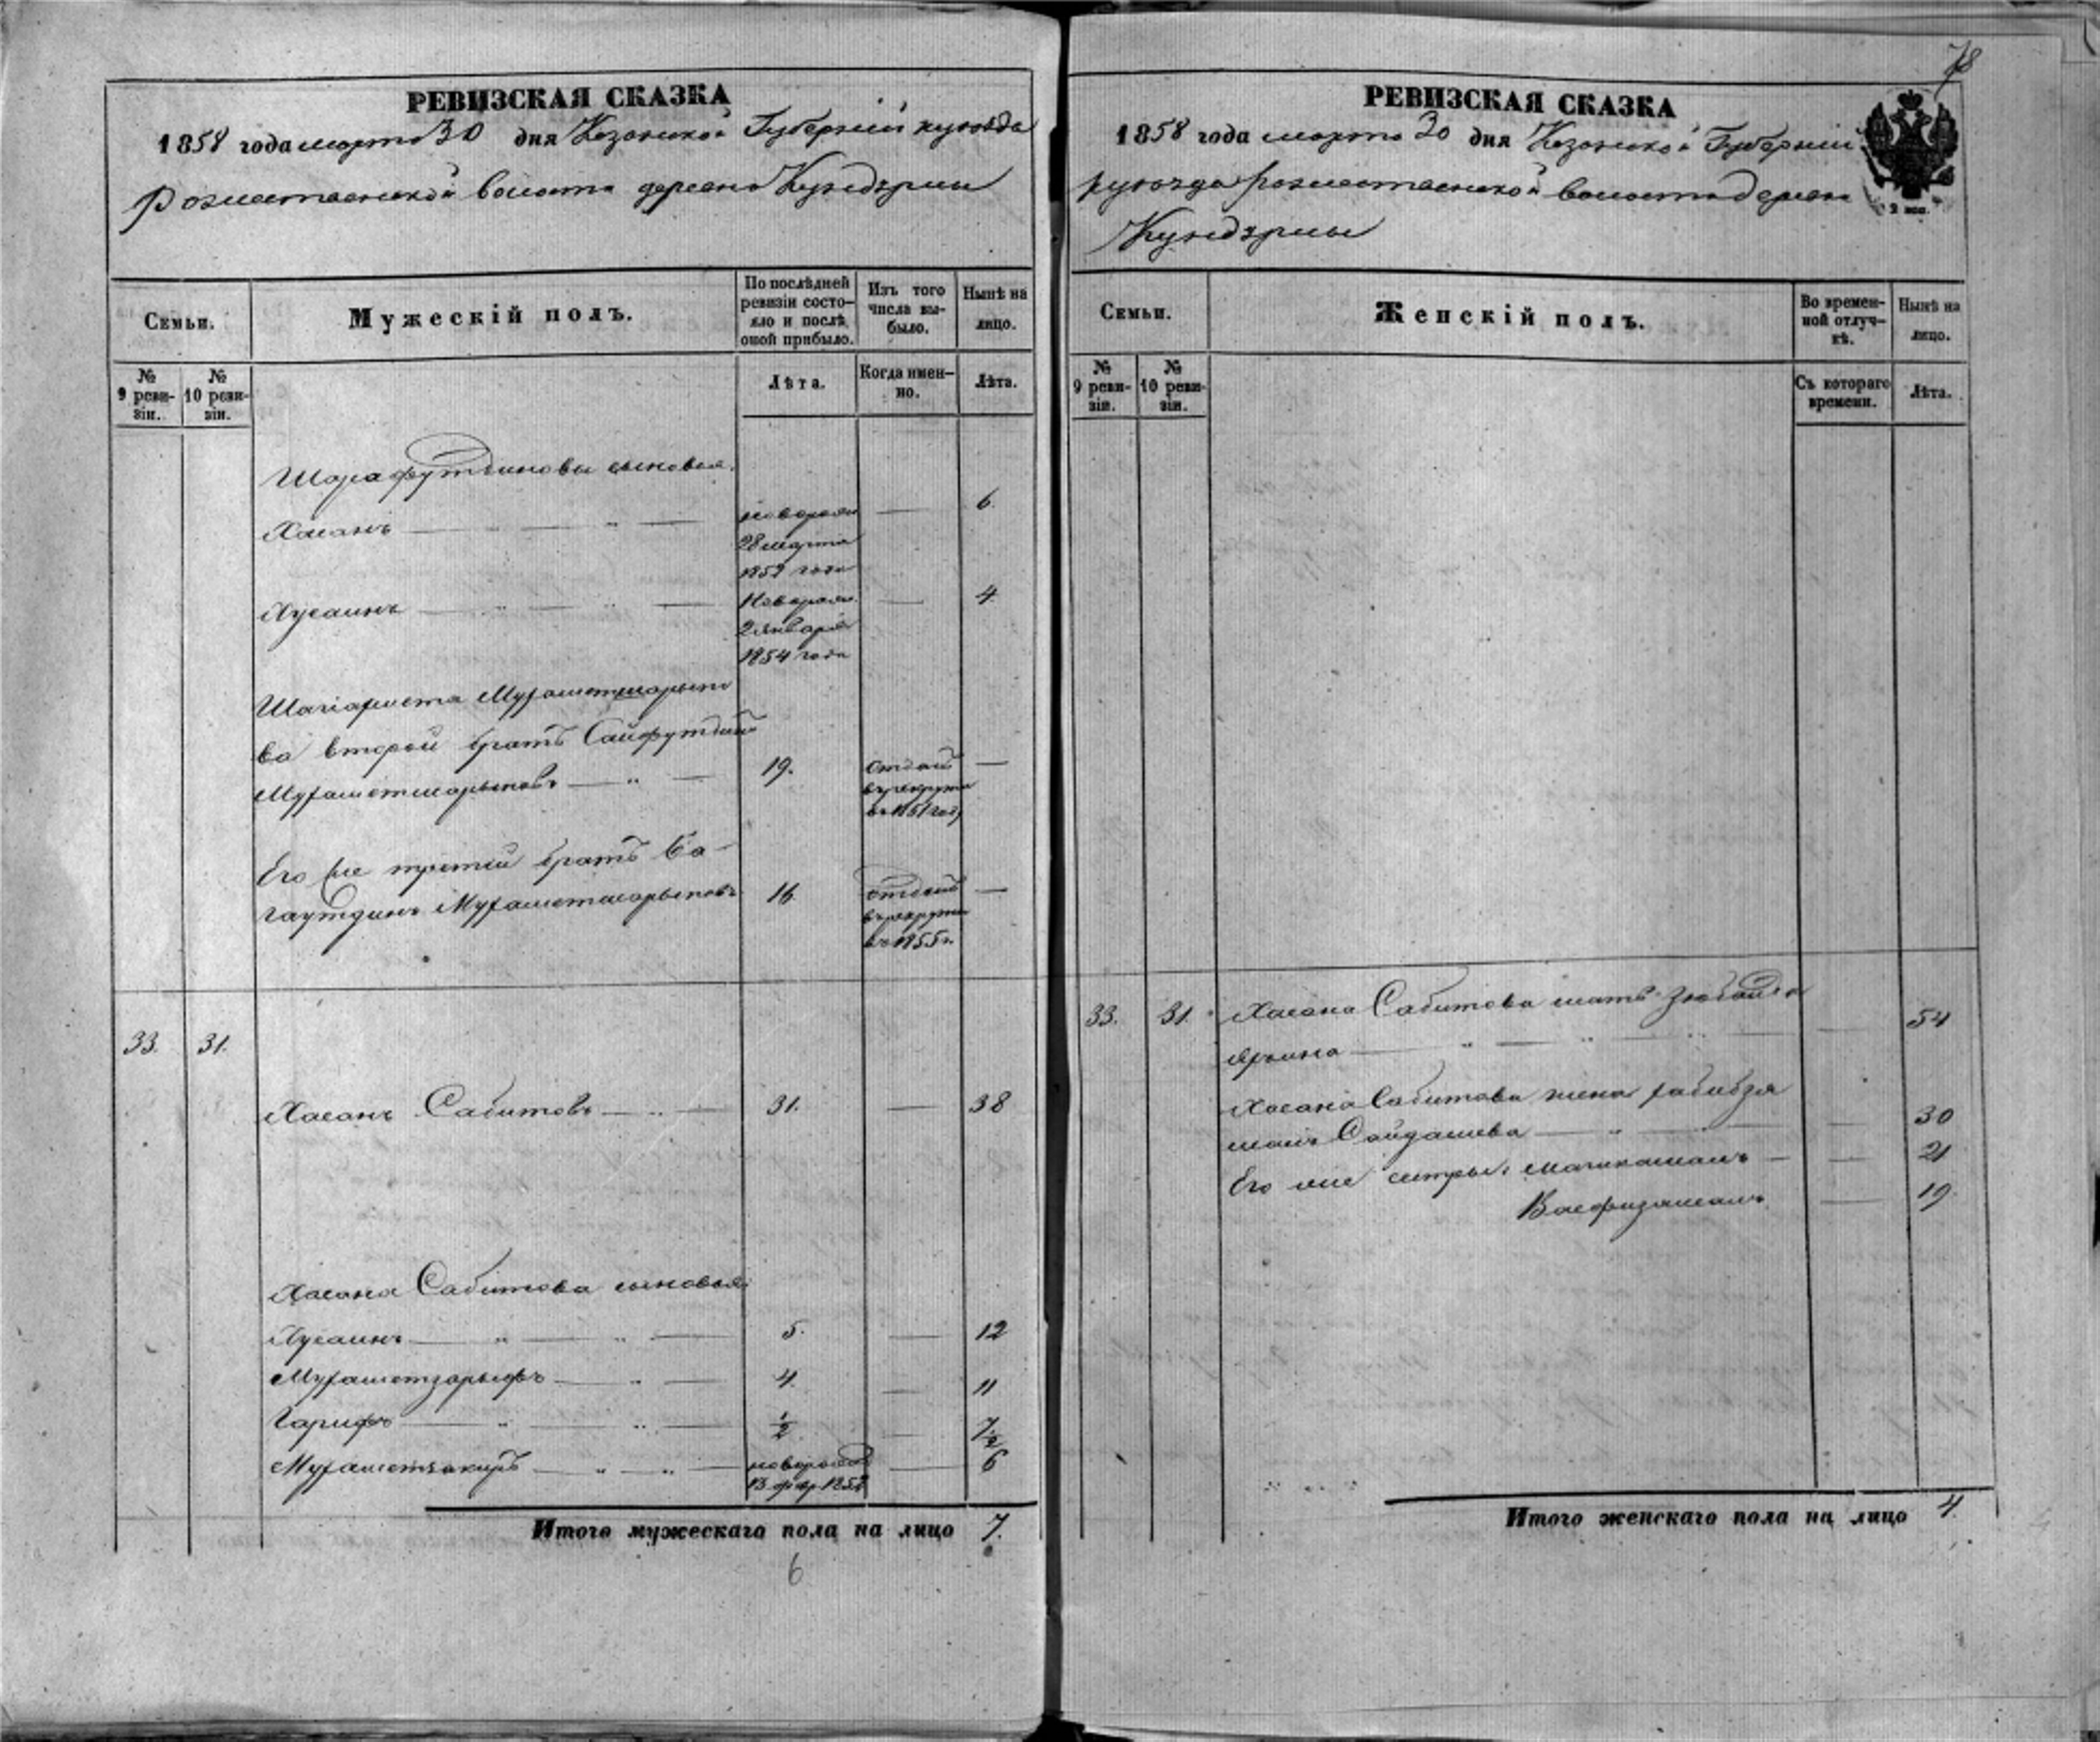 78
РЕВИЗСКАЯ СКАЗКА
1858 года марта 30 дня Казанской Губерніи и уѣзда
Рожественской волости деревни Кундурлы
Семьи.
Мужескій полъ.
По послѣдней ревизіи состо-
яло и послѣ оной прибыло.
Изъ того числа вы-
было.
Нынѣ на лицо.
№ 9 реви-
зіи.
№ 10 реви-
зіи.
Лѣта.
Когда имен-
но.
Лѣта.
Шарафутдиновы сыновья.
Хасанъ — " — новорож — 6.
28 марта
1852 года
Хусаинъ — " — " — Новорож. — 4.
2 января
1854 года
второй братъ Сайфутдинъ
19. отданъ —
в рекруты
въ 1851 году
Его же третій братъ Ба-
гаутдинъ 16. отданъ —
в рекруты
въ 1855 г.
33. 31.
Хасанъ Сабитовъ — " — 31. — 38
Хасана Сабитова сыновья
Хусаинъ — " — " — 5. — 12
Мухаметзарыфъ — " — 4. — 11
Гарифъ — " — " — 1/2 — 7 1/2
Мухаметзакиръ — " — " — новорожд — 6
13 фер 1852
Итого мужескаго пола на лицо 7.
6
РЕВИЗСКАЯ СКАЗКА
1858 года марта 30 дня Казанской Губерніи
и уѣзда Рожественской волости деревни
Кундурлы
2 коп.
Семьи.
Женскій полъ.
Во времен-
ной отлуч-
кѣ.
Нынѣ на лицо.
№ 9 реви-
зіи.
№ 10 реви-
зіи.
Съ котораго времени.
Лѣта.
33. 31. Хасана Сабитова мать
— " — " — " — — 54
Хасана Сабитова жена Хабибзя
малъ Сайдашева — " — — 30
Его же сестры: — — 21
Васфизямалъ — 19.
Итого женскаго пола на лицо 4.